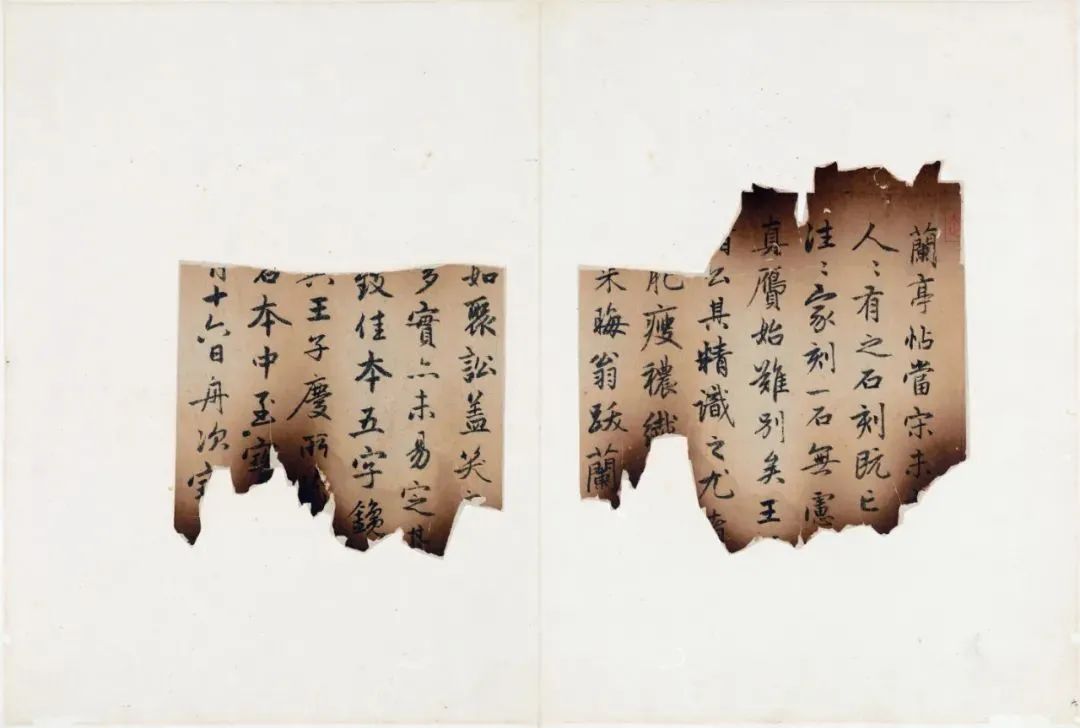 蘭亭帖當宋未
人〻有之石刻既亡
往〻家刻一石無慮
真贗始難別矣王
公其精識之尤
肥瘦穠纖
朱晦翁跋蘭
如聚訟蓋笑
多實亦未易定其
致佳本五字鑱
與王子慶所
石本中至寶
月十六日舟次